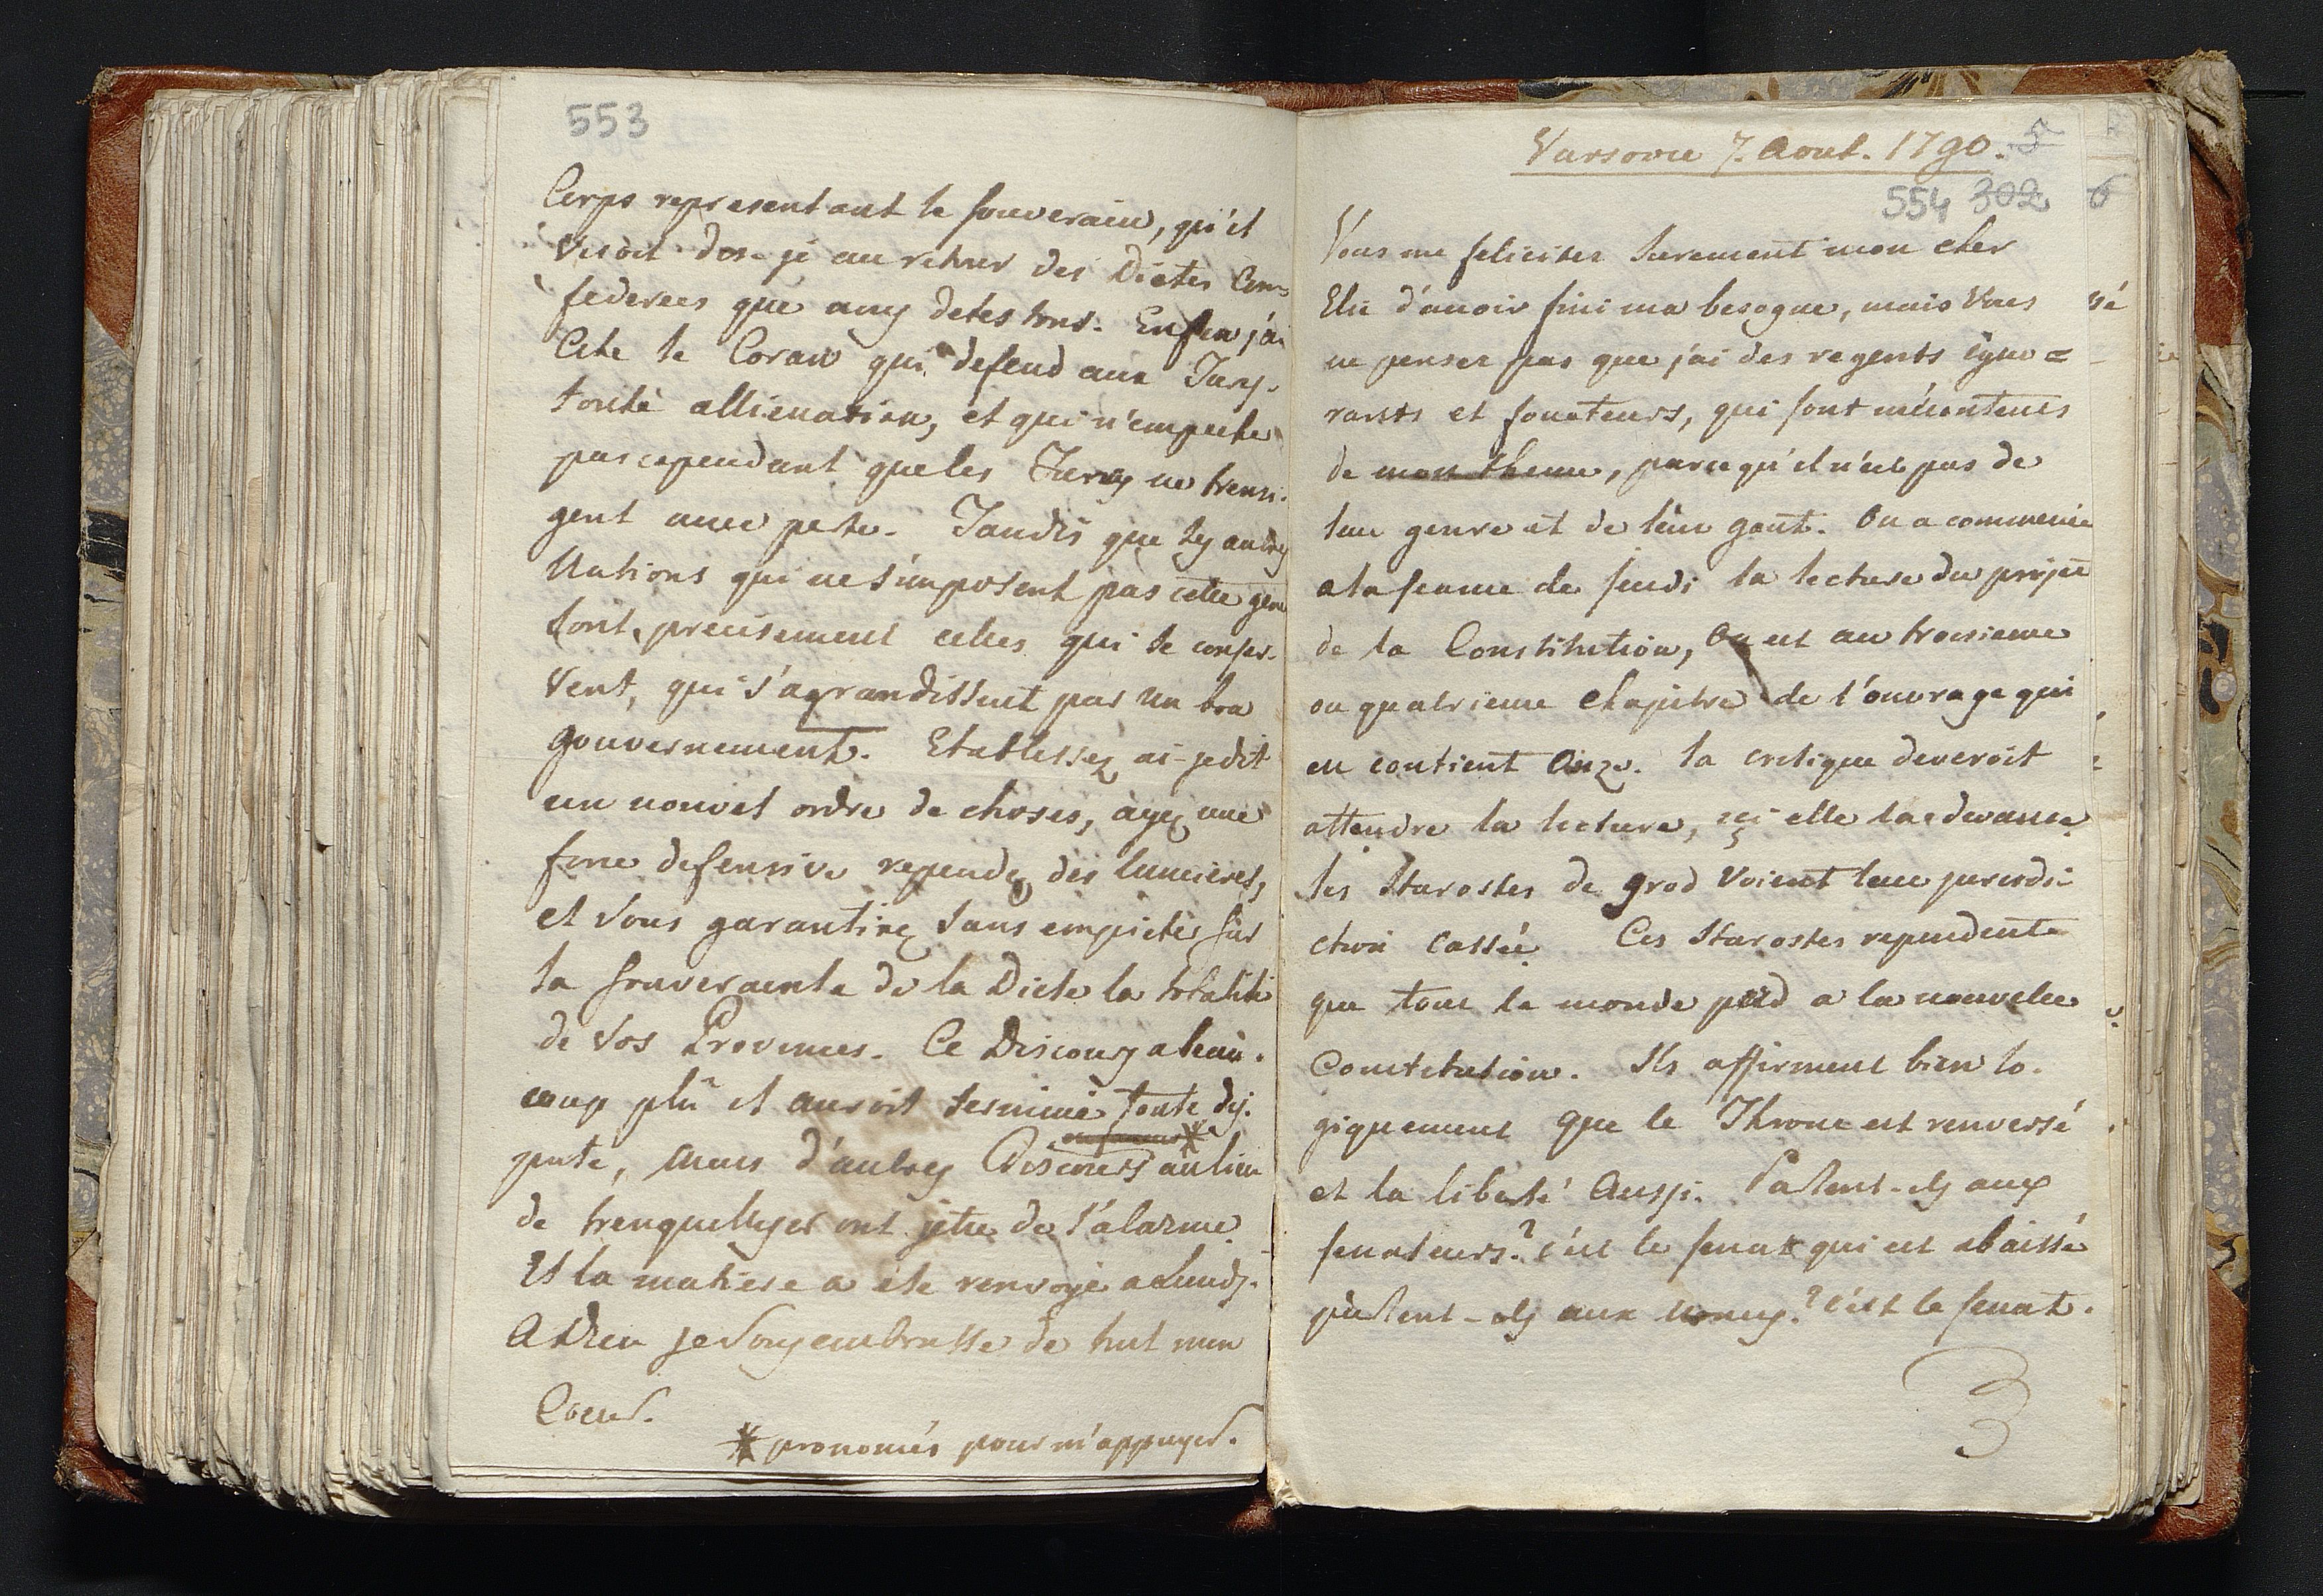 553
Corps representant le souverain, qu'il
visoit dos-je au retour des Dietes Con=
federees que nuy detestons. Enfin j'ai
Cite le Coran qui defend aux Turcs.
toute allienation, et qui n'empeche
pas cependant que les Turcs ne transi.
gent avec perte. Tandis que les autres
Nations qui ne s'imposent pas cette gene
sont precisement celles qui se conser-
vent, qui s'agrandissent par un bon
gouvernement. Etablissez ai-je dit
un nouvel ordre de choses, ayez une
force defensive rependez des lumieres,
et vous garantirez sans empieter sur
la souverainte de la Diete la totalite
de vos Provinces. Ce Discours a beau.
coup plû et auroit terminé toute dis.
pute, mais d'autres Discours * au lieu
de tranquelliser ont jetté de l'alarme.
Et la matiere a été renvoyé a Lundy.
Adieu je vous embrasse de tout mon
Coeur.
* prononcés pour m'appuyer.
Varsovie 7. Aout. 1790. 5
554 302 6
Vous me felicitez surement mon cher
Elie d'avoir fini ma besogne, mais vous
ne pensez pas que j'ai des regents igno=
rants et fouetteurs, qui sont mécontents
de mon theme, parcequ'il n'est pas de
leur genre et de leur gout. On a commencé
a la seance de Jeudi la lecture du projet
de la Constitution, On est au troisieme
ou quatrieme chapitre de l'ouvrage qui
en contient Onze. la critique deveroit
attendre la lecture, ici elle la devance.
les Starostes de grod voient leur jurisdi
ction cassée. Ces Starostes rependent
que tout le monde perd a la nouvelle
Constitution. Ils affirment bien lo.
giquement que le Throne est renversé
et la liberté Aussi. Parlent-ils aux
senateurs? c'est le senat qui est abaissé
parlent-ils aux nonces? c'est le senat.
3